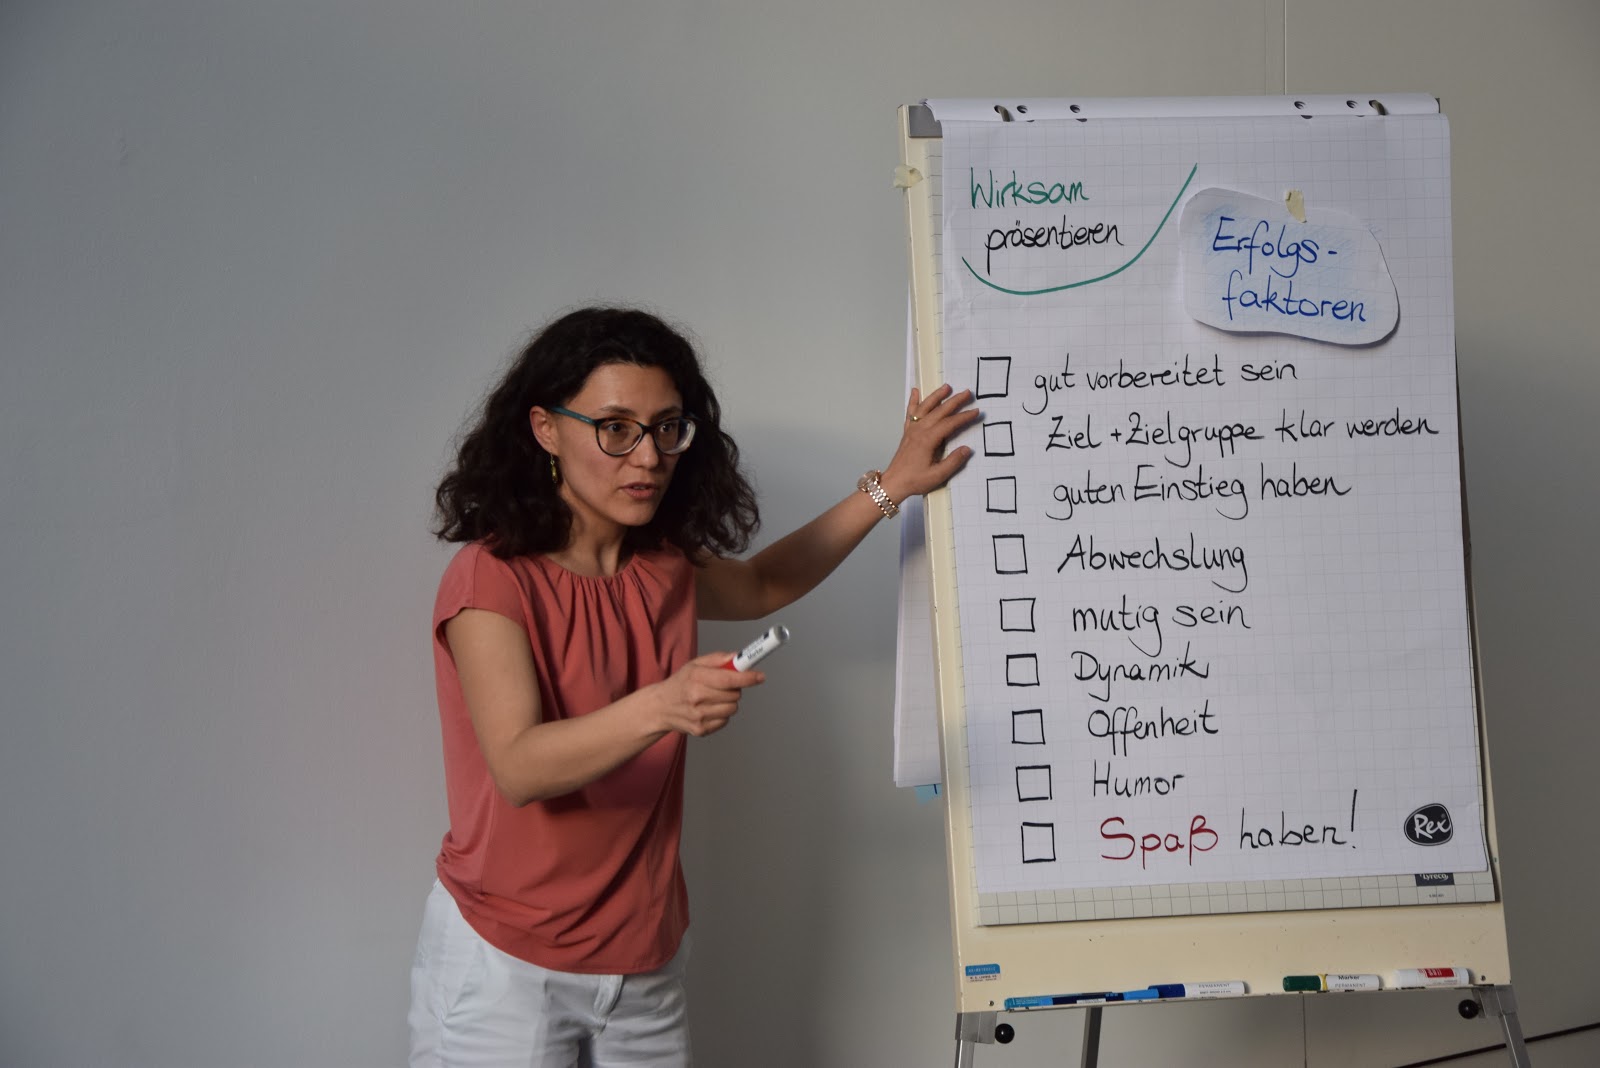 Wirksam
präsentieren
Erfolgs-
faktoren
gut vorbereitet sein
Ziel + Zielgruppe klar werden
guten Einstieg haben
Abwechslung
mutig sein
Dynamik
Offenheit
Humor
Spaß haben!
Rex
Lyreco
Marker
PERMANENT
Marker
PERMANENT